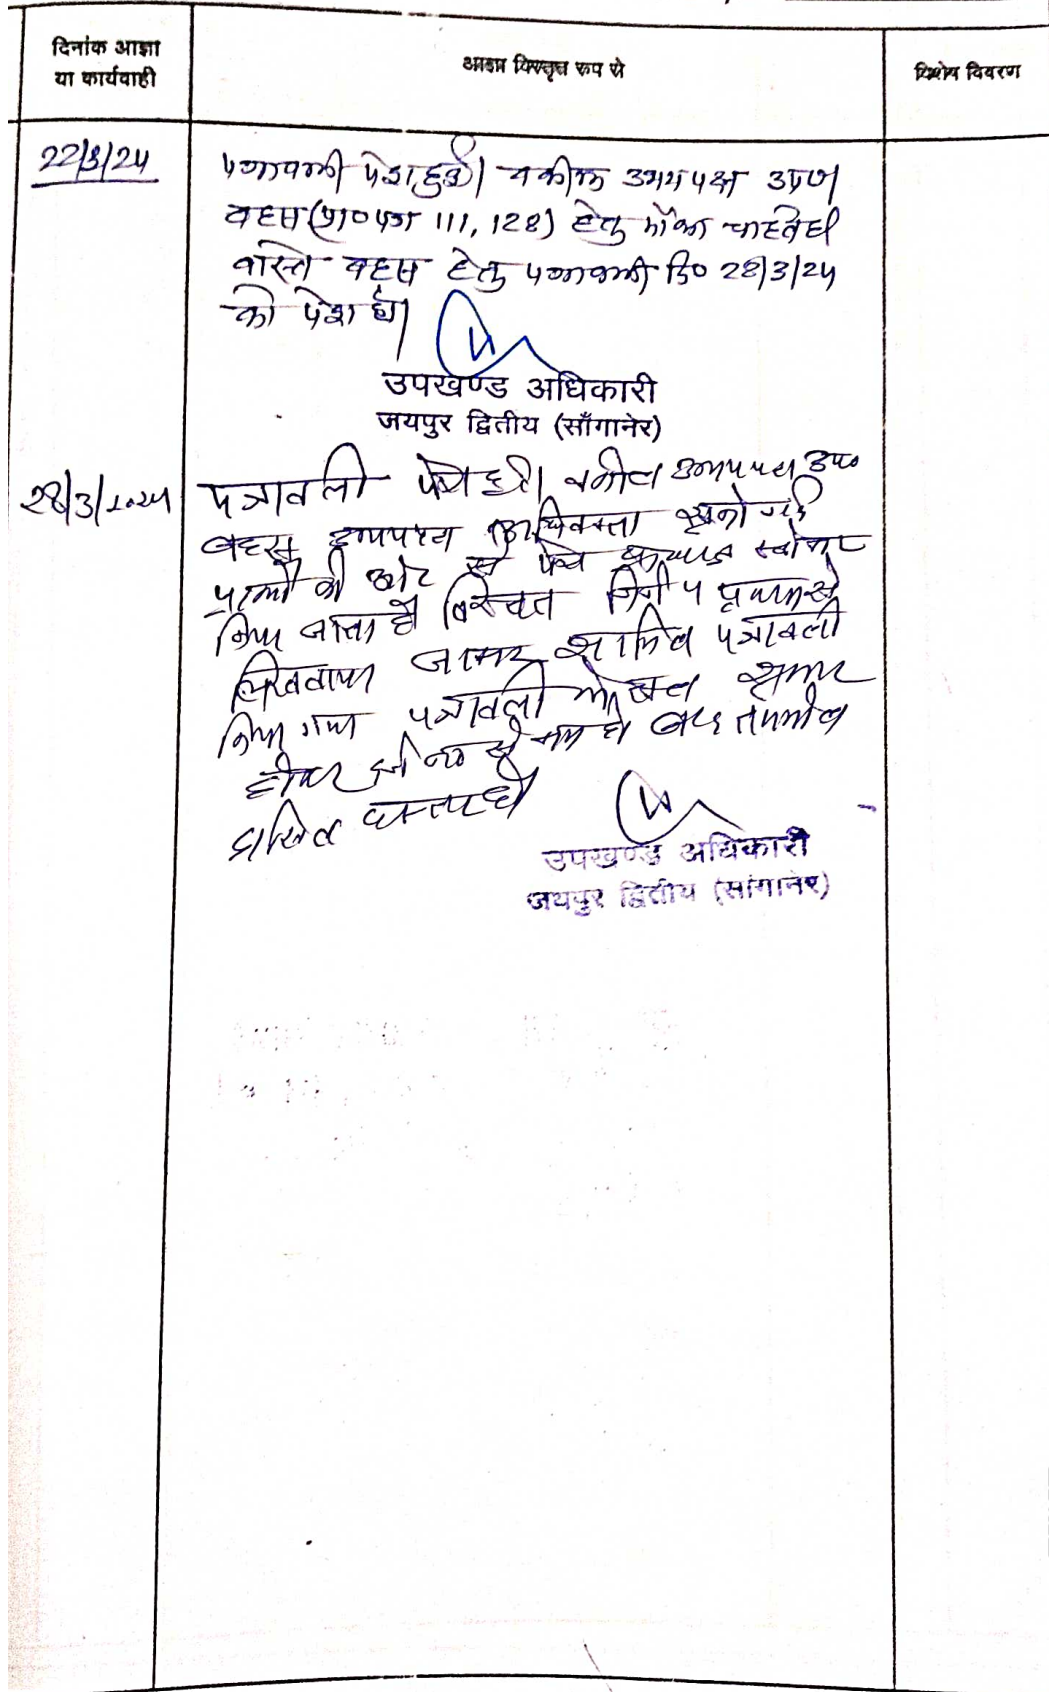 दिनांक आज्ञा
या कार्यवाही
आज्ञा विस्तृत रूप से
विशेष विवरण
22/3/24
पत्रावली पेश हुई। वकील उभयपक्ष उप०
बहस (प्रा०पत्र 111, 128) हेतु मौका चाहते है
वास्ते बहस हेतु पत्रावली दि० 28/3/24
को पेश हो।
उपखण्ड अधिकारी
जयपुर द्वितीय (साँगानेर)
28/3/2024
पत्रावली पेश हुई। वकील उभयपक्ष उप०
बहस उभयपक्ष अधिवक्ता सुनी गई
की ओर से पेश स्वीकार
किया जाता है विस्तृत निर्णय पृथक से
लिखवाया जाकर शामिल पत्रावली
किया गया पत्रावली फैसल शुमार
होकर नम्बर से कम हो बाद तकमील
दाखिल दफ्तर हो
उपखण्ड अधिकारी
जयपुर द्वितीय (सांगानेर)